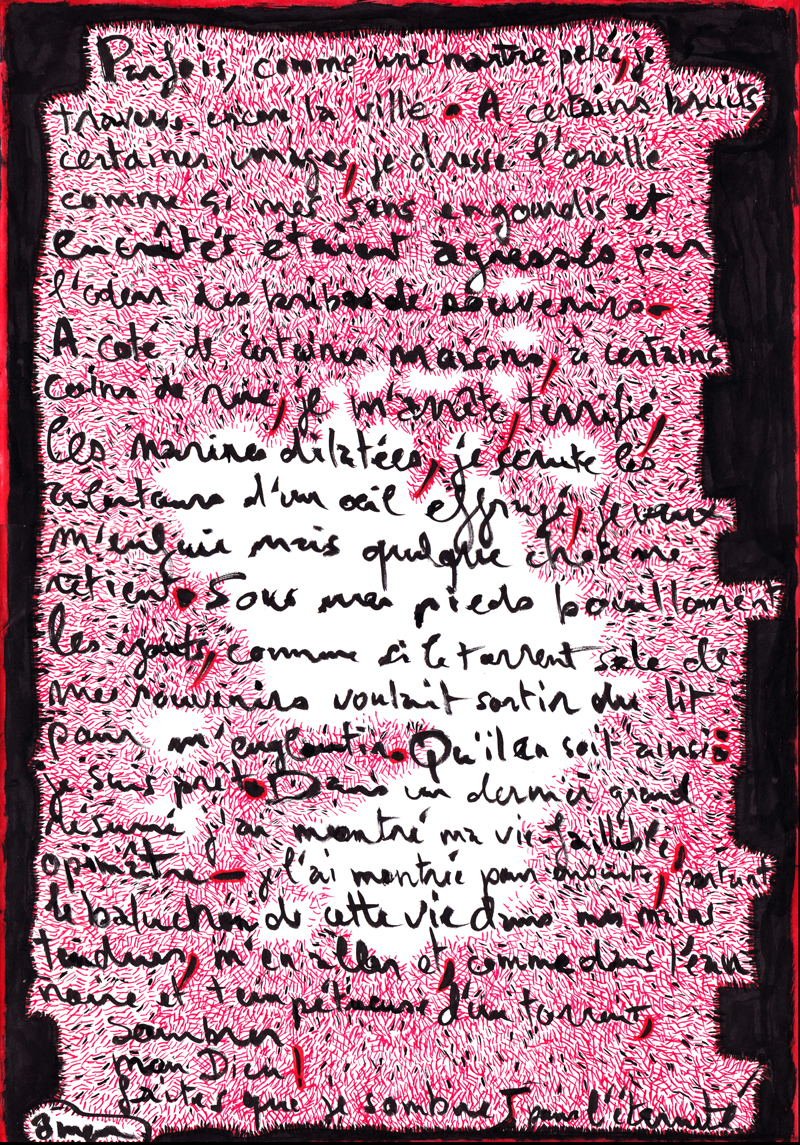 Parfois, comme une martre pelée, je
traverse encore la ville. A certains bruits
certaines images, je dresse l'oreille
comme si mes sens engourdis et
encroûtés étaient agressés par
l'odeur des bribes de souvenirs.
A coté de certaines maisons, à certains
coins de rue, je m'arrête, terrifié,
les narines dilatées, je scrute les
alentours d'un oeil effrayé, je veux
m'enfuir mais quelque chose me
retient. Sous mes pieds bouillonnent
les égouts, comme si le torrent sale de
mes souvenirs voulait sortir du lit
pour m'engloutir. Qu'il en soit ainsi :
je suis prêt. Dans un dernier grand
résumé j'ai montré ma vie faillible,
opiniâtre – je l'ai montrée pour ensuite, portant
le baluchon de cette vie dans mes mains
tendues, m'en aller et, comme dans l'eau
noire et tempétueuse d'un torrent,
sombrer
mon Dieu !
faites que je sombre pour l'éternité